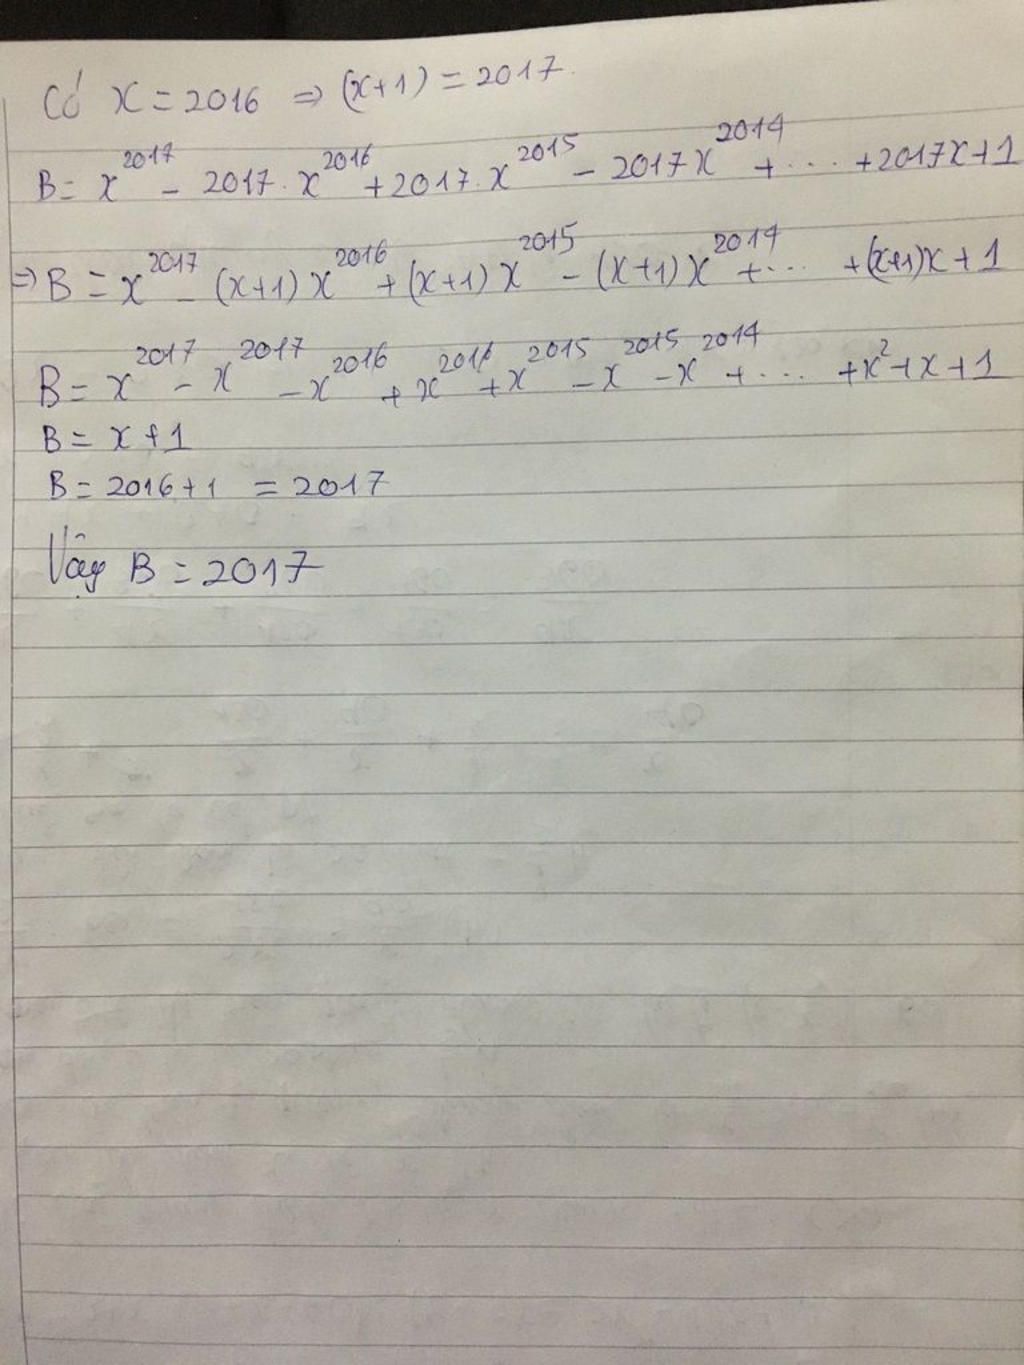 Có x = 2016 ⇒ (x+1) = 2017.
B = x^2017 - 2017.x^2016 + 2017.x^2015 - 2017x^2014 + ... + 2017x+1
⇒ B = x^2017 - (x+1)x^2016 + (x+1)x^2015 - (x+1)x^2014 + ... + (x+1)x + 1
B = x^2017 - x^2017 - x^2016 + x^2016 + x^2015 - x^2015 - x^2014 + ... + x^2 + x + 1
B = x + 1
B = 2016 + 1 = 2017
Vậy B = 2017